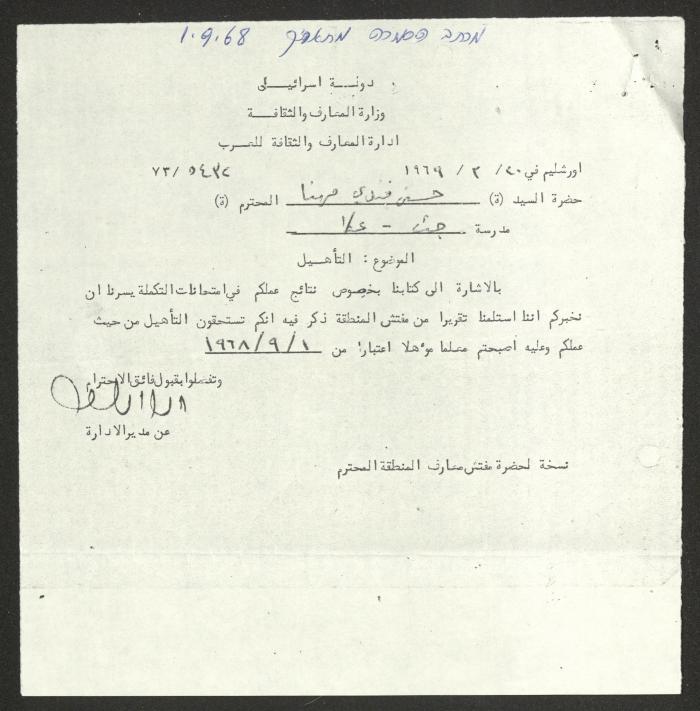 מכתב הסמכה מתאריך 1.9.68
دولـــة اسرائيـــلى
وزارة المعارف والثقافــة
ادارة المعارف والثقافة للعـرب
اورشليم في ٢٠/ ٢ / ١٩٦٩ ٧٣/٥٤٣٢
حضرة السيد (ة) حسين مهنا المحترم (ة)
مدرسة جث - عكا
الموضوع: التأهيل
بالاشارة الى كتابنا بخصوص نتائج عملكم في امتحانات التكملة يسرنا ان
نخبركم اننا استلمنا تقريرا من مفتش المنطقة ذكر فيه انكم تستحقون التأهيل من حيث
عملكم وعليه أصبحتم معلما مؤهلا اعتبارا من ١٩٦٨/٩/١
وتفضلوا بقبول فائق الاحترام
عن مدير الادارة
نسخة لحضرة مفتش معارف المنطقة المحترم